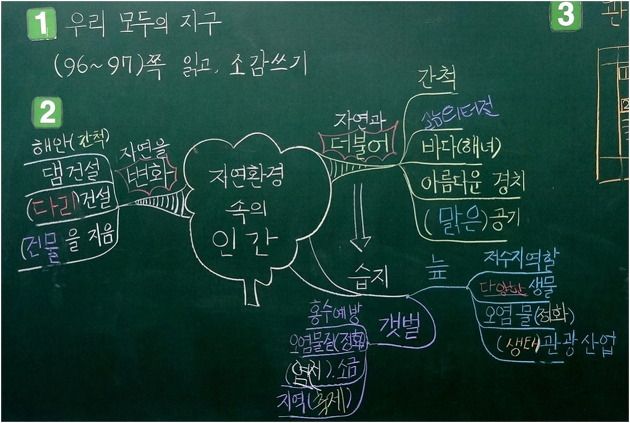 1 우리 모두의 지구
(96~97)쪽 읽고, 소감쓰기
2
해안(간척)
댐건설
(다리)건설
(건물)을 지음
자연을
변화
자연환경
속의
인간
자연과
더불어
간척
삶의터전
바다(해녀)
아름다운 경치
(맑은)공기
습지
늪
저수지역할
다양한 생물
오염물(정화)
(생태)관광산업
갯벌
홍수예방
오염물질(정화)
(염전).소금
지역(축제)
3
관